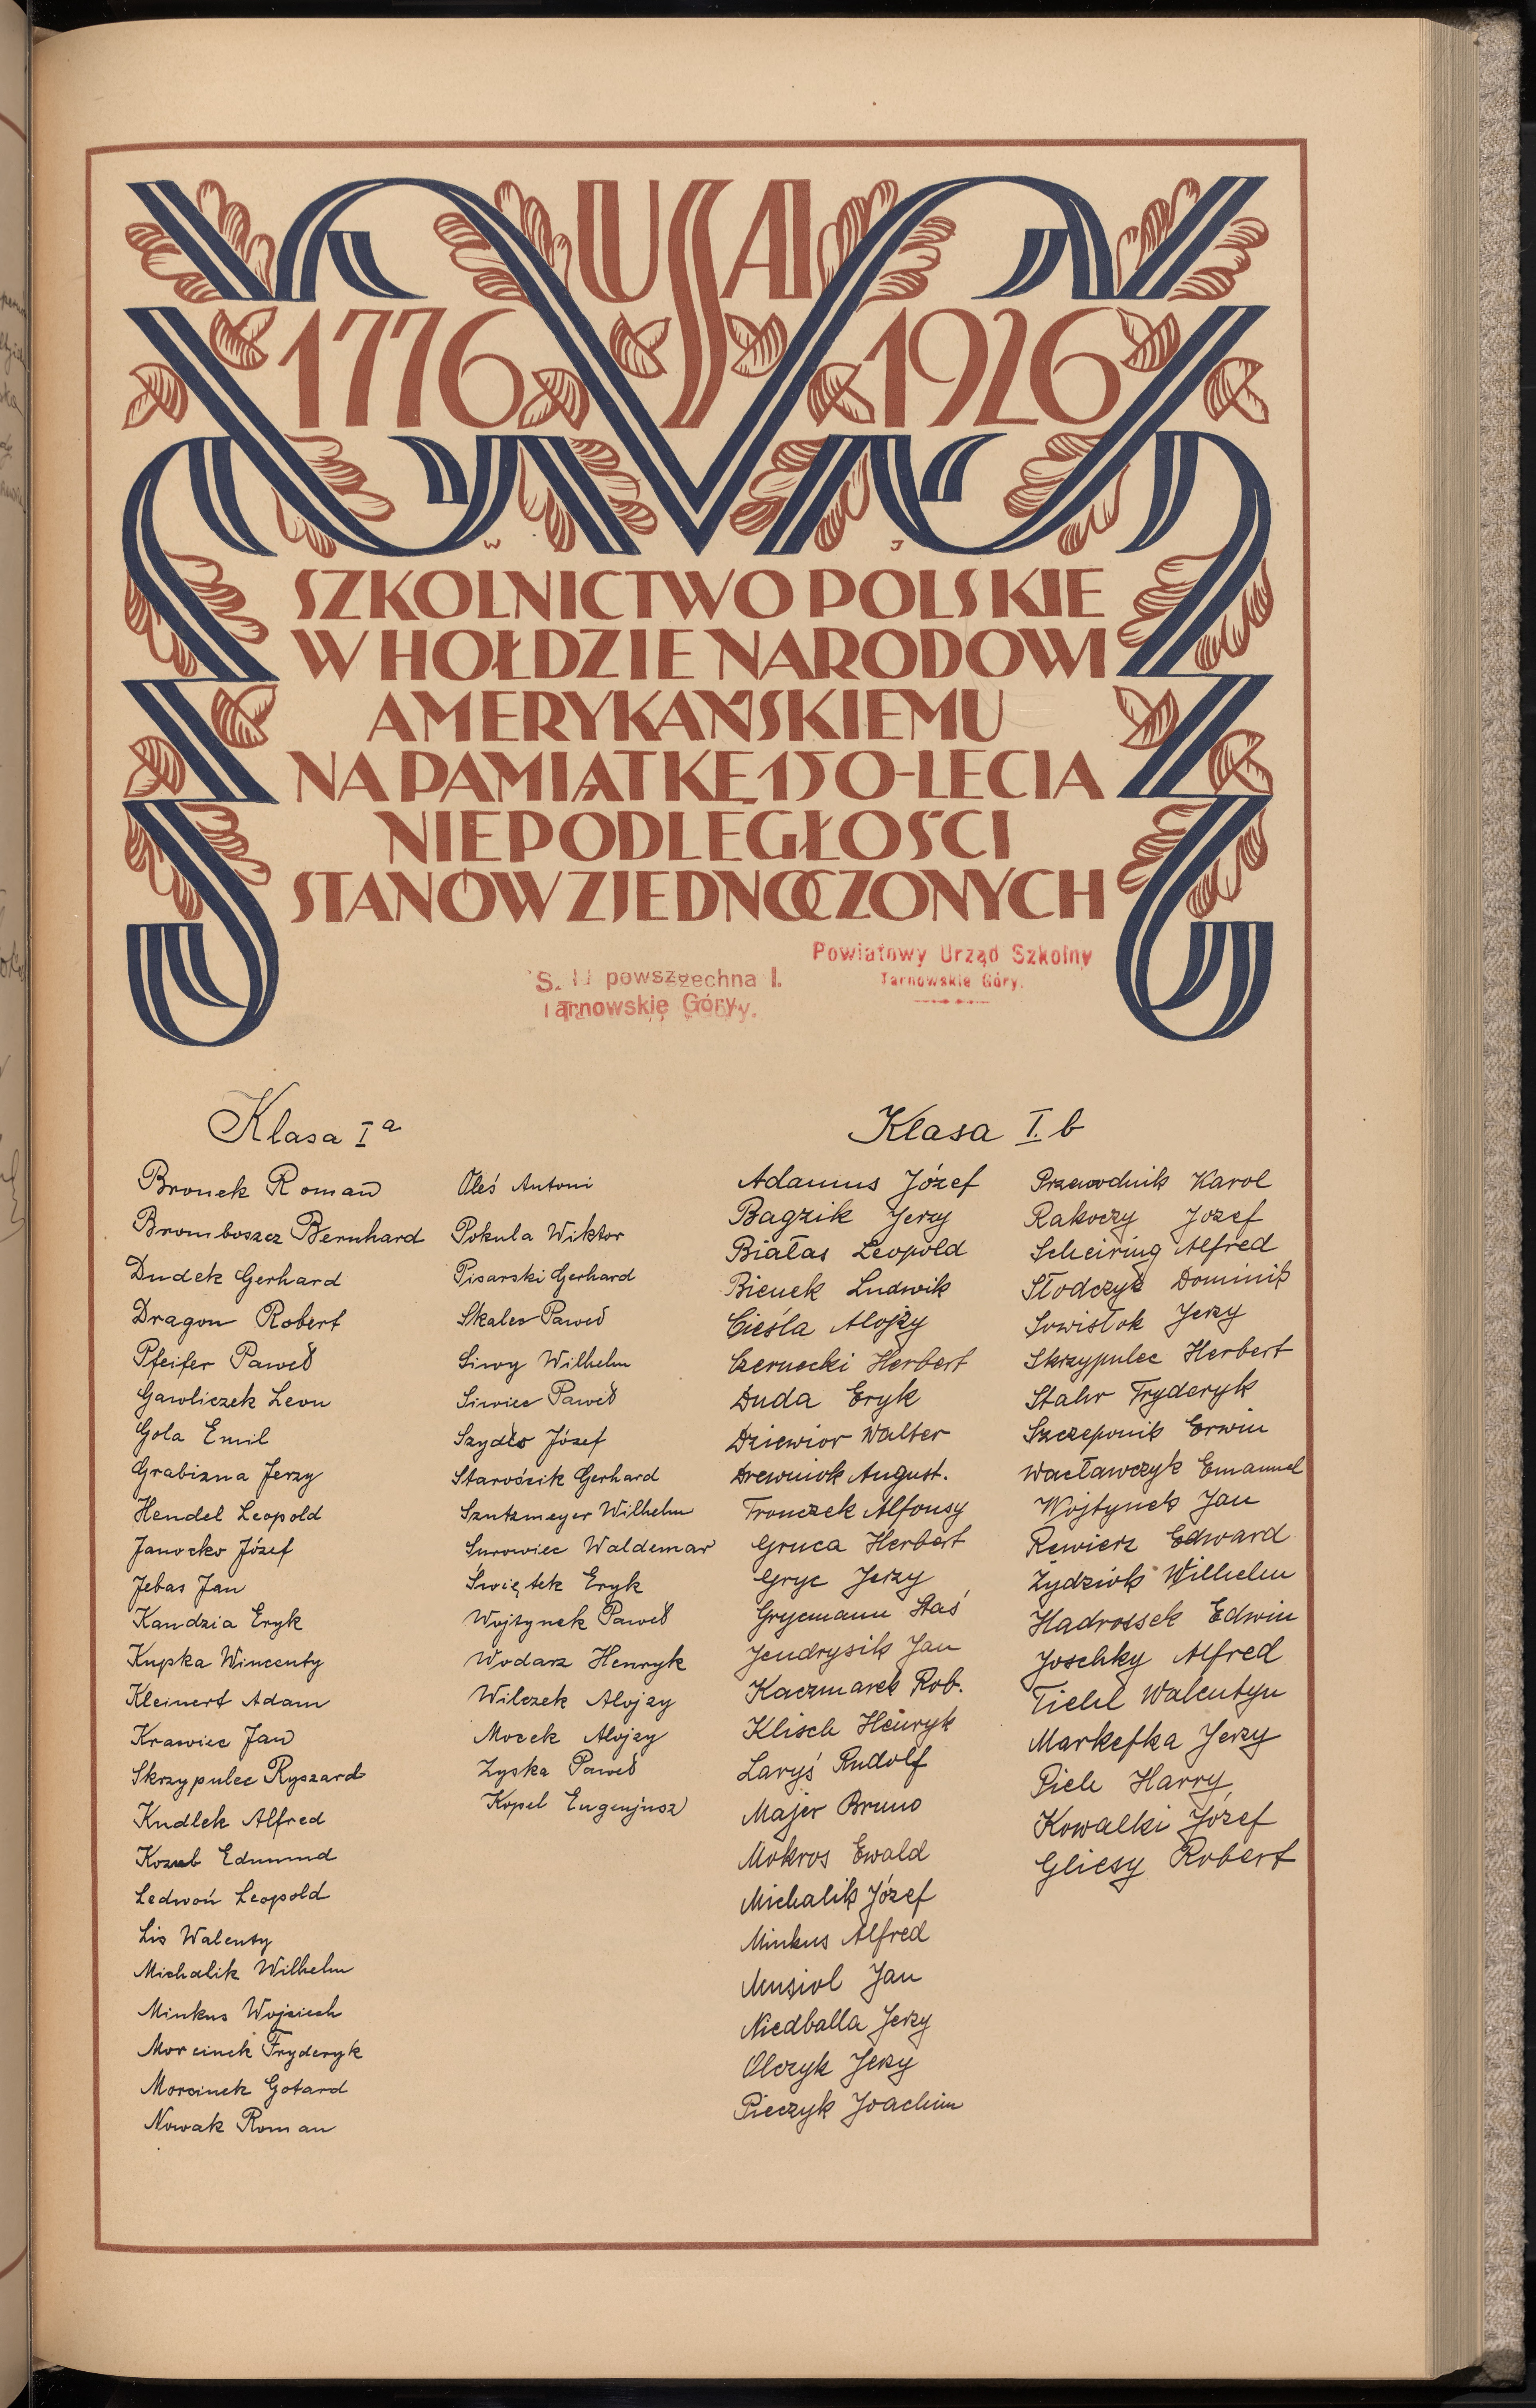 USA
1776 1926
W J
SZKOLNICTWO POLSKIE
W HOŁDZIE NARODOWI
AMERYKAŃSKIEMU
NA PAMIĄTKĘ 150-LECIA
NIEPODLEGŁOŚCI
STANÓW ZJEDNOCZONYCH
Powiatowy Urząd Szkolny
Tarnowskie Góry.
powszechna I.
Tarnowskie Góry.
Klasa I a
Bronek Roman
Bromboszcz Bernhard
Dudek Gerhard
Dragon Robert
Pfeifer Paweł
Gawliczek Leon
Gola Emil
Grabizna Jerzy
Hendel Leopold
Janocko Józef
Jebas Jan
Kandzia Eryk
Kupka Wincenty
Kleinert Adam
Krawiec Jan
Skrzypulec Ryszard
Kudlek Alfred
Kozub Edmund
Ledwoń Leopold
Lis Walenty
Michalik Wilhelm
Minkus Wojciech
Morcinek Fryderyk
Morcinek Gotard
Nowak Roman
Oleś Antoni
Pokula Wiktor
Pisarski Gerhard
Skalec Paweł
Siwy Wilhelm
Siwiec Paweł
Szydło Józef
Starościk Gerhard
Szntzmeyer Wilhelm
Surowiec Waldemar
Świętek Eryk
Wojtynek Paweł
Wodarz Henryk
Wilczek Alojzy
Mocek Alojzy
Zyska Paweł
Kopel Eugenjusz
Klasa I. b
Adamus Józef
Bagzik Jerzy
Białas Leopold
Bienek Ludwik
Cieśla Alojzy
Czernecki Herbert
Duda Eryk
Dziewior Walter
Drewniok August.
Fronczek Alfonsy
Gruca Herbert
Gryc Jerzy
Grycmann Staś
Jendrysik Jan
Kaczmarek Rob.
Klisch Henryk
Laryś Rudolf
Majer Bruno
Mokros Ewald
Michalik Józef
Minkus Alfred
Musiol Jan
Niedballa Jerzy
Olczyk Jerzy
Pieczyk Joachim
Przewodnik Karol
Rakoczy Jozef
Scheiring Alfred
Słodczyk Dominik
Sowisłok Jerzy
Skrzypulec Herbert
Stahr Fryderyk
Szczeponik Erwin
Wacławczyk Emanuel
Wojtynek Jan
Rewierz Edward
Żydziok Wilhelm
Hadrossek Edwin
Joschky Alfred
Tichl Walentyn
Markefka Jerzy
Piele Harry
Kowalki Józef
Gliesy Robert